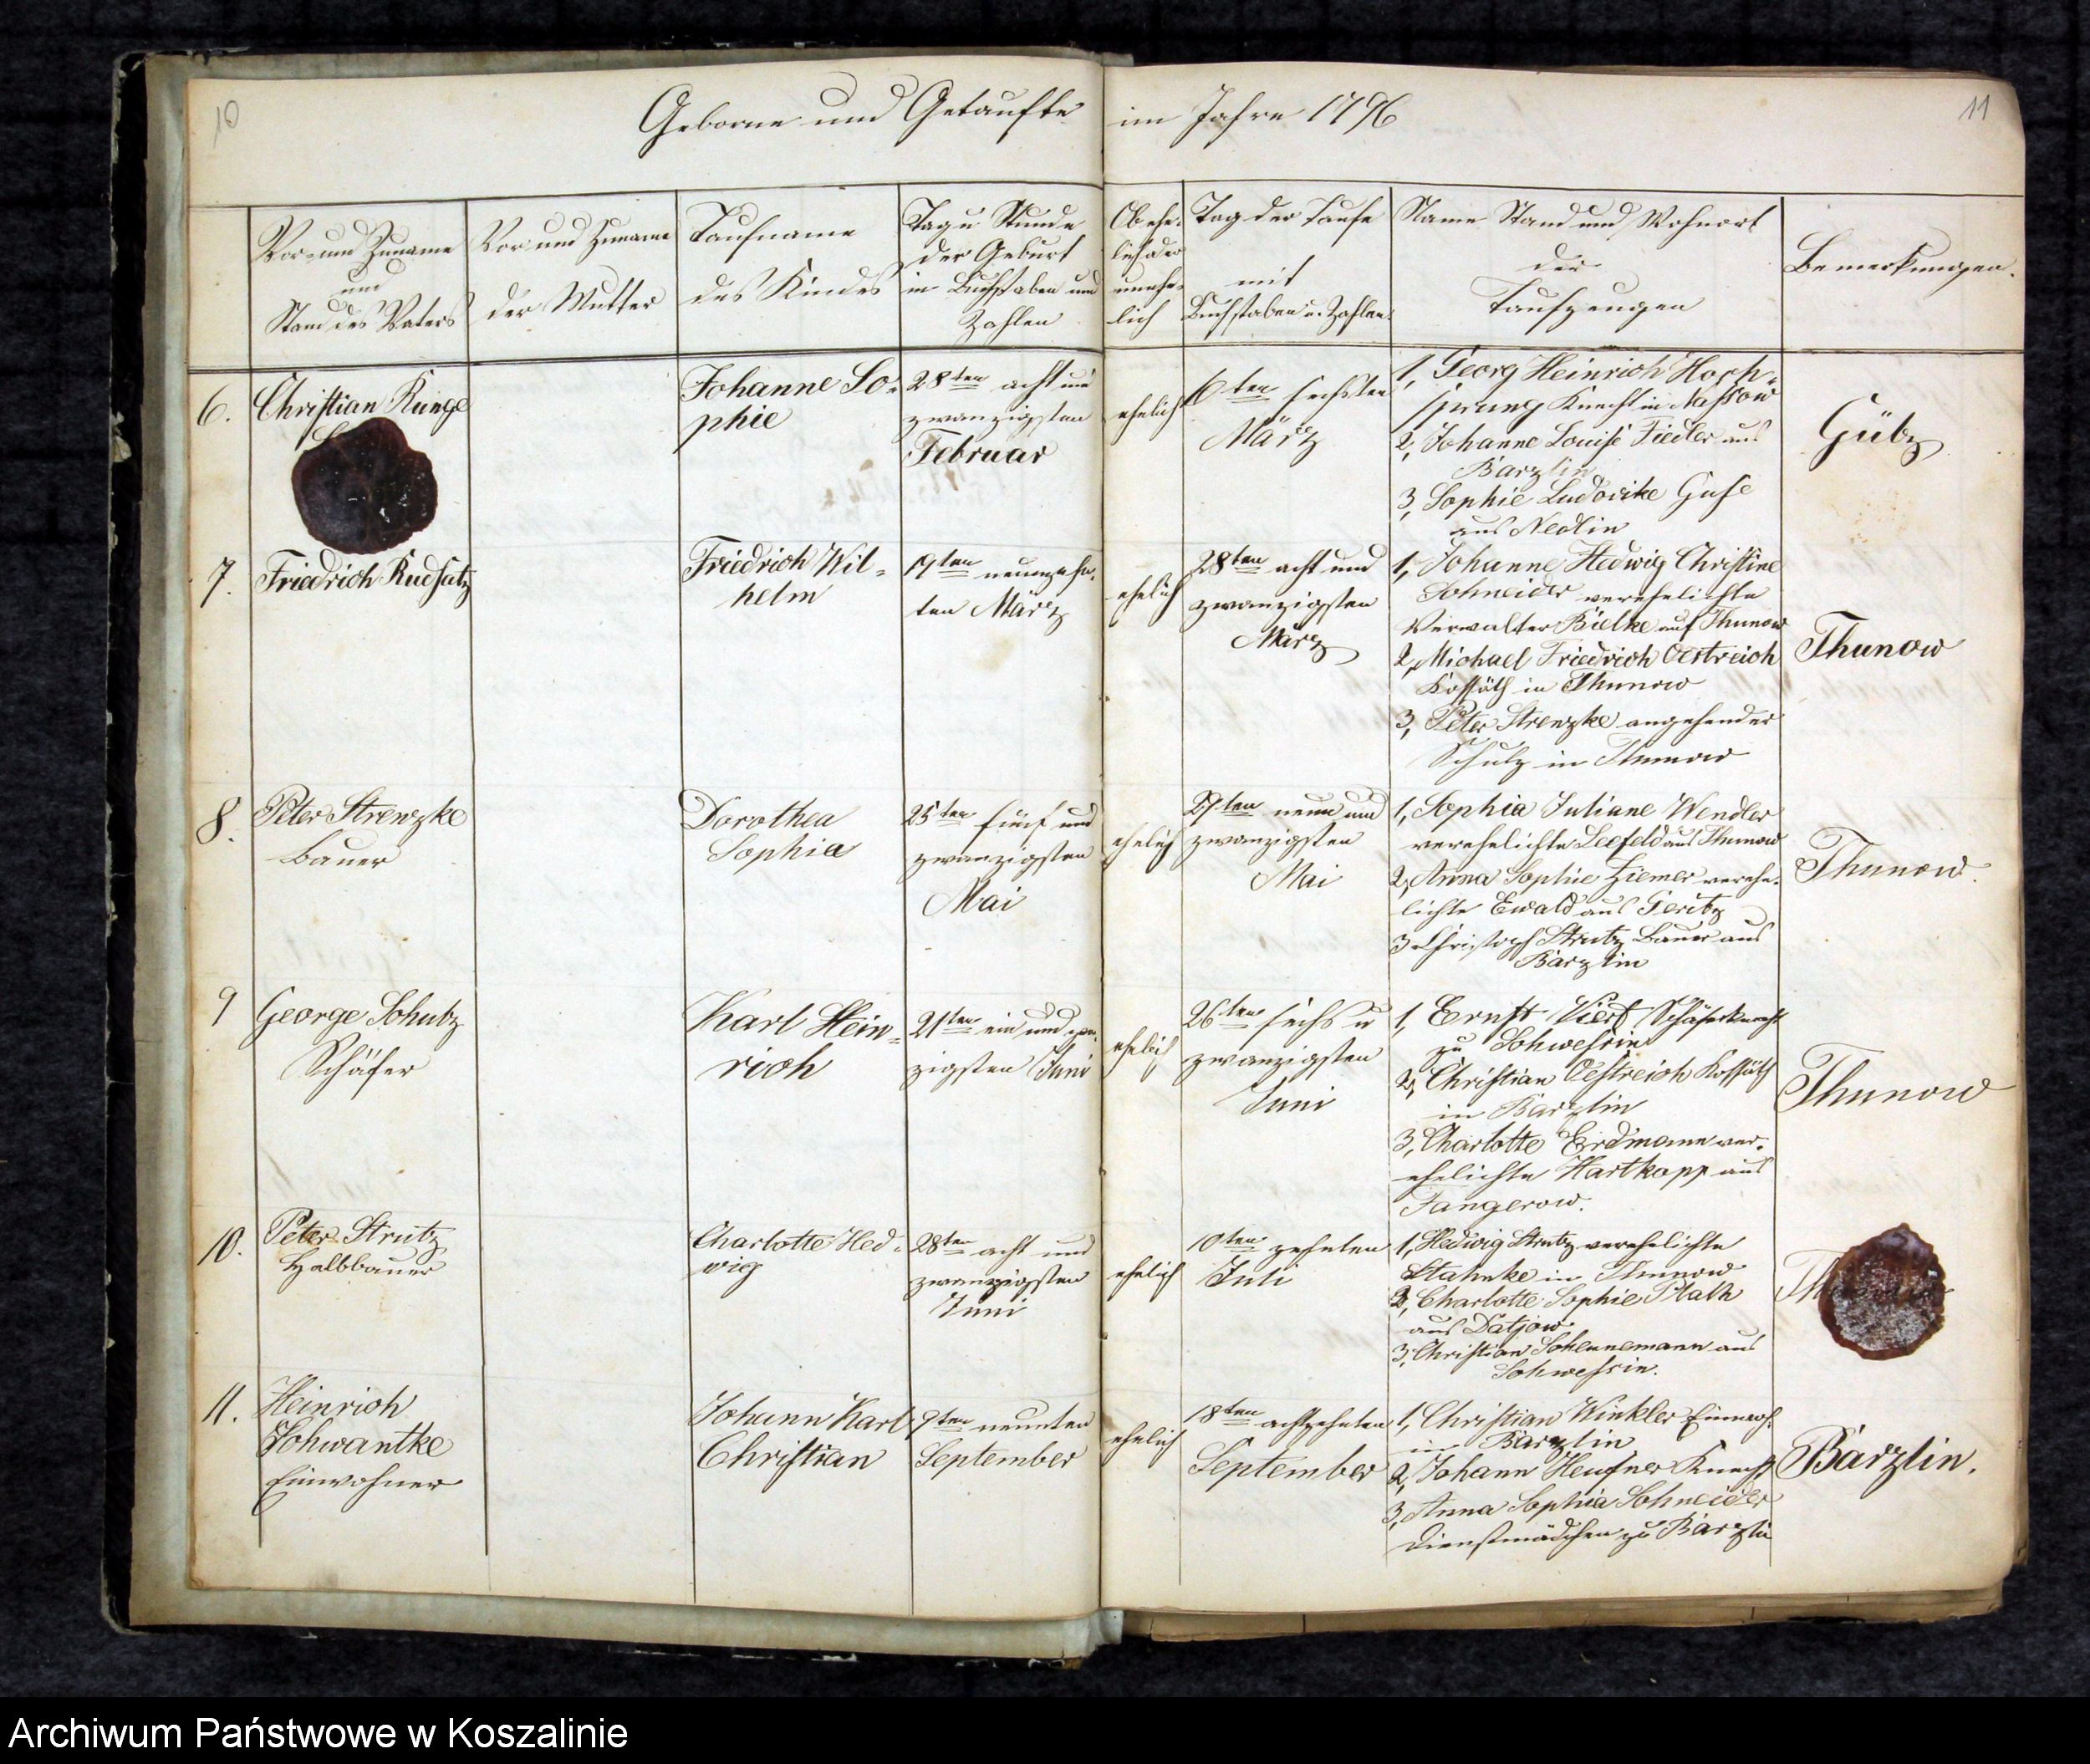 10
Geborne und Getaufte im Jahre 1796
11
Vor- und Zuname
und
Stand des Vaters
Vor und Zuname
der Mutter
Taufname
des Kindes
Tag u Stunde
der Geburt
in Buchstaben und
Zahlen
Ob ehe-
lich oder
unehe-
lich
Tag der Taufe
mit
Buchstaben u. Zahlen
Name Stand und Wohnort
der
Taufzeugen
Bemerkungen.
6.
Christian Runge
Johanne So-
phie
28ten acht und
zwanzigsten
Februar
ehelich
6ten sechsten
März
1, Georg Heinrich Hoch-
sprung Knecht in Nassow
2, Johanne Louise Fiedler aus
Barzlin
3, Sophie Ludovike Guse
aus Nedlin
Gübz
7.
Friedrich Rudsatz
Friedrich Wil-
helm
19ten neunzehn-
ten März
ehelich
28ten acht und
zwanzigsten
März
1, Johanne Hedwig Christine
Schneider verehelichte
Verwalter Bielke auf Thunow
2, Michael Friedrich Oestreich
Kossäth in Thunow
3, Peter Strenzke angehender
Schulz in Thunow
Thunow
8.
Peter Strenzke
Bauer
Dorothea
Sophia
25ten fünf und
zwanzigsten
Mai
ehelich
29ten neun und
zwanzigsten
Mai
1, Sophia Juliane Wendler
verehelichte Leefeld aus Thunow
2, Anna Sophie Ziemer verehe-
lichte Ewald aus Geritz
3 Christoph Strutz Bauer aus
Barzlin
Thunow.
9
George Schutz
Schäfer
Karl Hein-
rich
21ten ein und zwan-
zigsten Juni
ehelich
26ten sechs u
zwanzigsten
Juni
1, Ernst Viert Schäferknecht
zu Schwessin
2, Christian Oestreich Kossäth
in Barzlin
3, Charlotte Erdmann ver-
ehelichte Hartkopp aus
Tangerow.
Thunow
10.
Peter Strutz
Halbbauer
Charlotte Hed-
wig
28ten acht und
zwanzigsten
Juni
ehelich
10ten zehnten
Juli
1, Hedwig Strutz verehelichte
Stahnke in Thunow
2, Charlotte Sophie Plath
aus Datjow
3, Christian Schennemann aus
Schwessin.
11.
Heinrich
Schwantke
Einwohner
Johann Karl
Christian
9ten neunten
September
ehelich
18ten achtzehnten
September
1, Christian Winkler Einwoh.
in Barzlin
2, Johann Heufner Knecht
3, Anna Sophia Schneider
Dienstmädchen zu Barzlin
Barzlin.
Archiwum Państwowe w Koszalinie